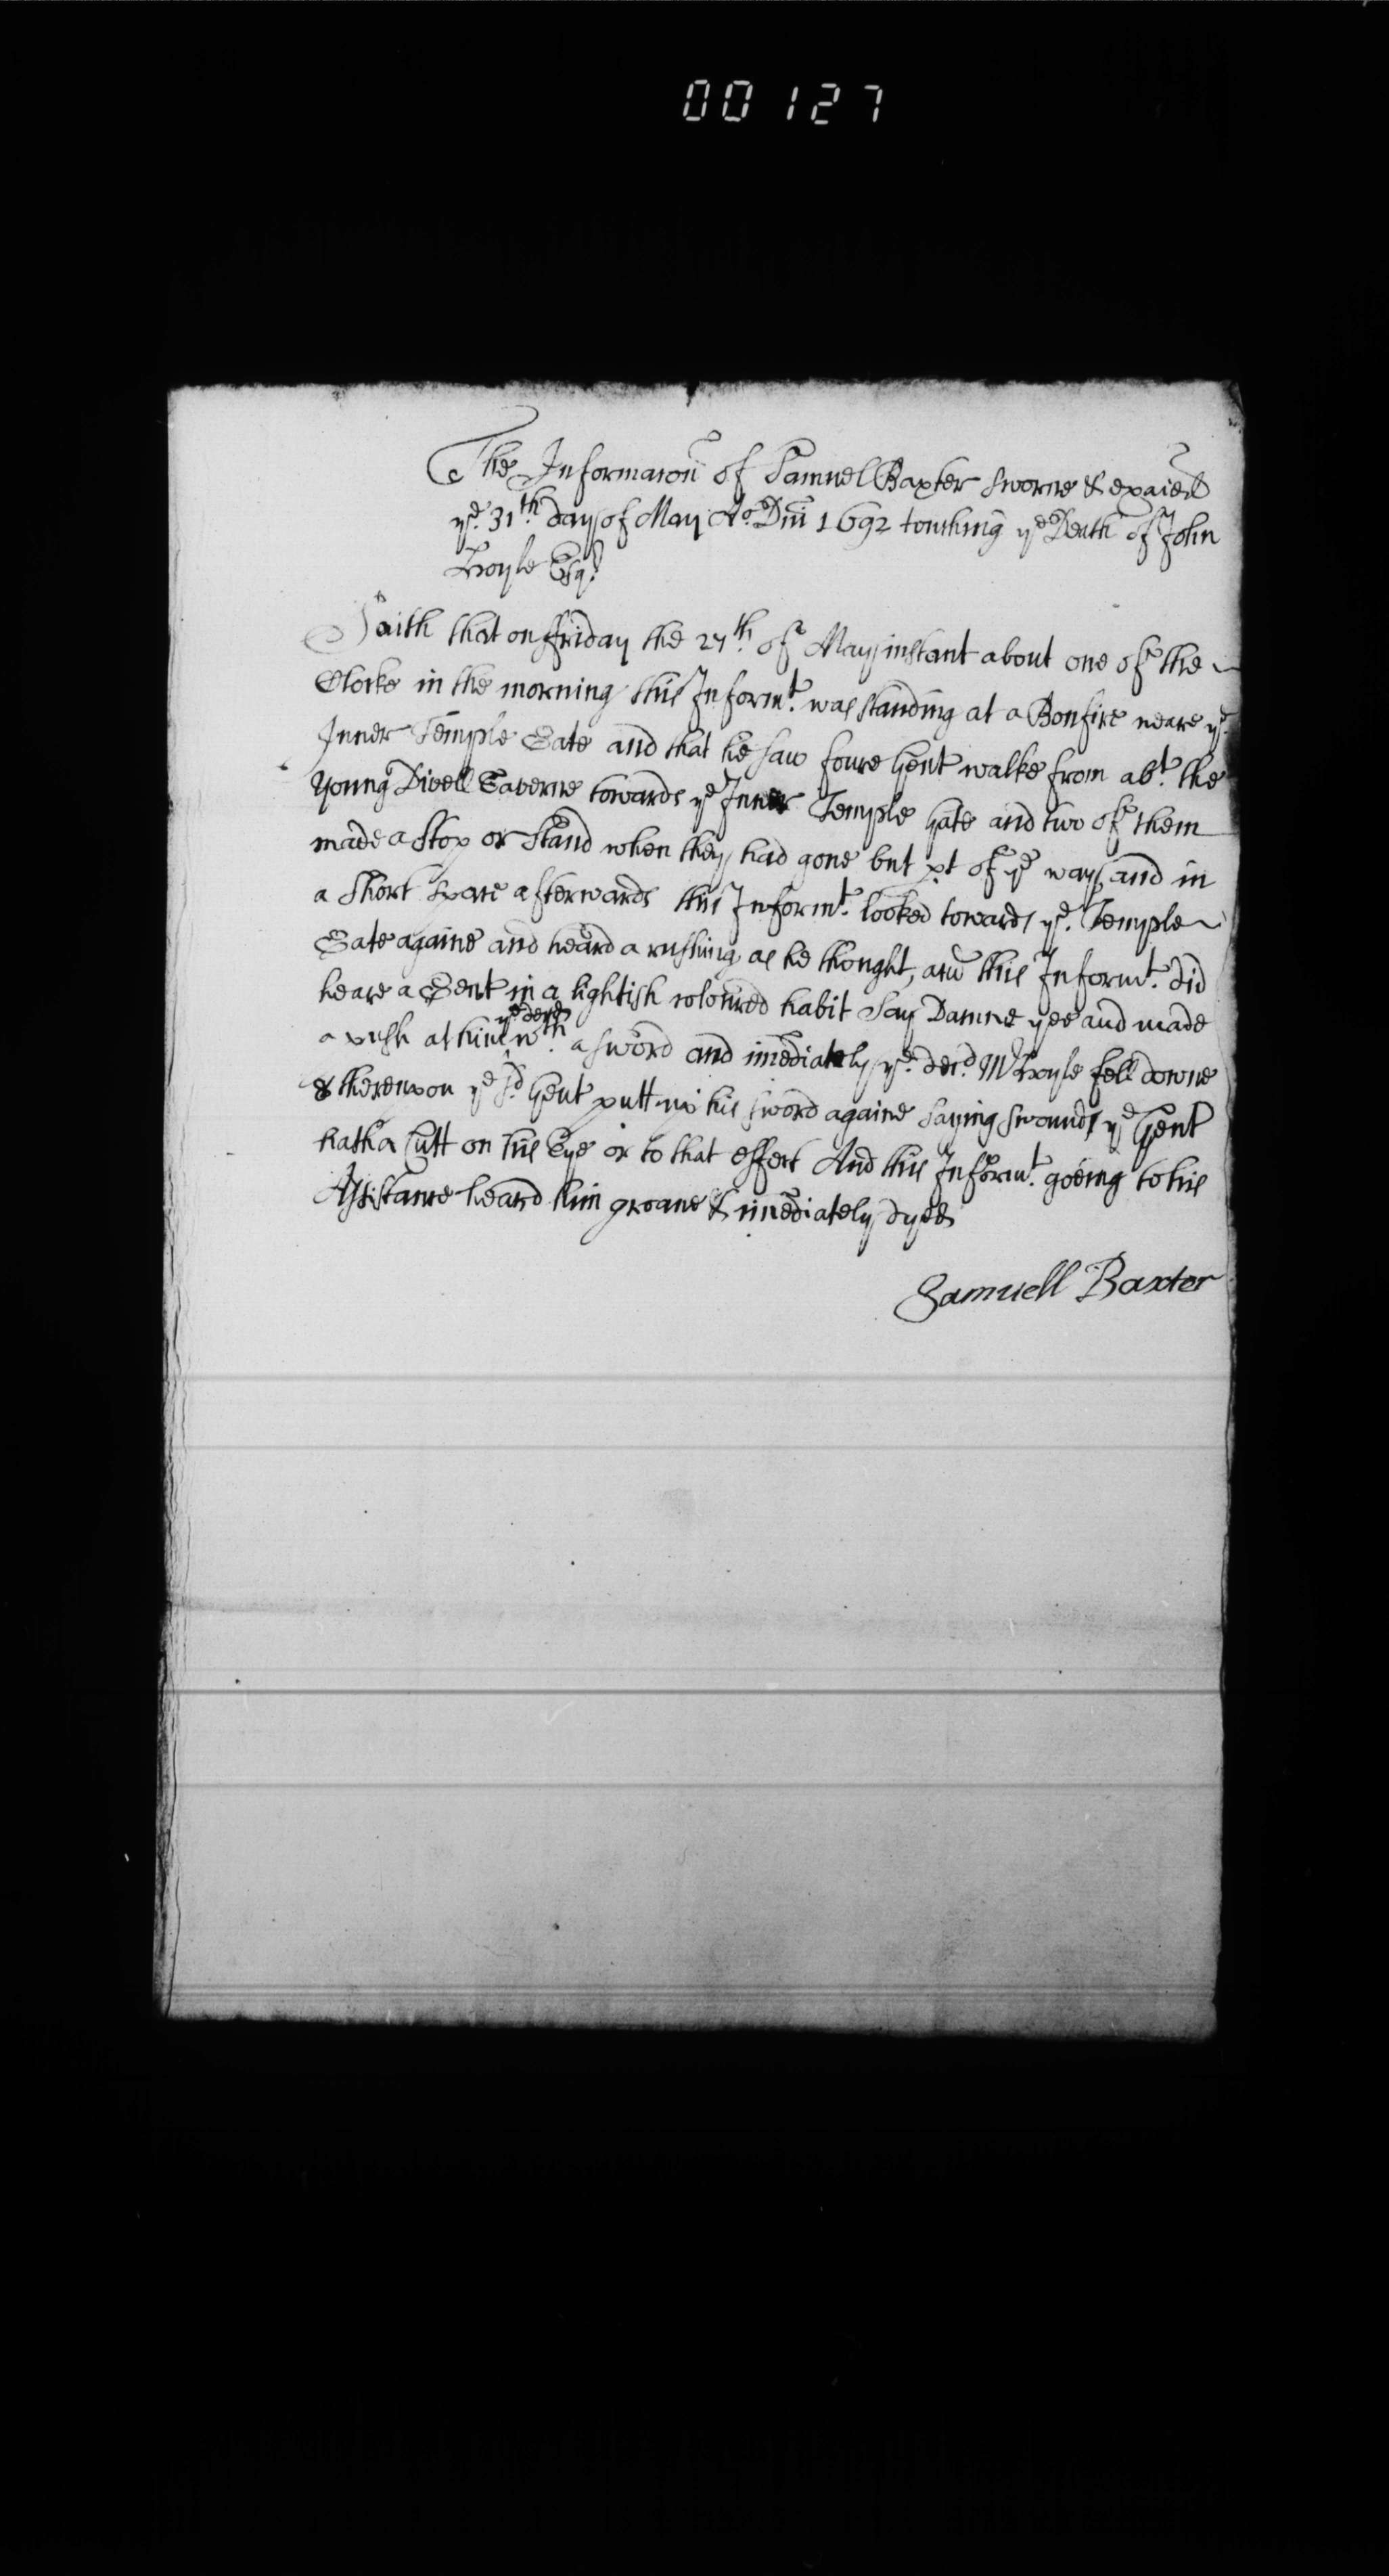 00127
The Informacon of Samuel Baxter sworne & exaied
ye. 31th. day of May Ao. Dni 1692 touching ye Death of John
Hoyle Esqr.
Saith that on ffriday the 27th. of May instant about one of the
Clocke in the morning this Informt. was standing at a Bonfire neare ye.
Inner Temple Gate and that he saw foure Gent walke from abt. the
Young Divell Taverne towards ye Inner Temple Gate and two of them
made a Stop or Stand when they had gone but pt of ye way and in
a short space afterwards this Informt. looked towards ye. Temple
Gate againe and heard a rushing as he thought, and this Informt. did
heare a Gent in a lightish coloured habit say Damne yee and made
ye decd
a push at him wth. a sword and imediately ye. decd. Mr Hoyle fell downe
& thereupon ye sd. Gent putt up his sword againe saying swounds ye Gent
hath a Cutt on his Eye or to that effect And this Informt. goeing to his
Assistance heard him groane & imediately dyed
Samuell Baxter